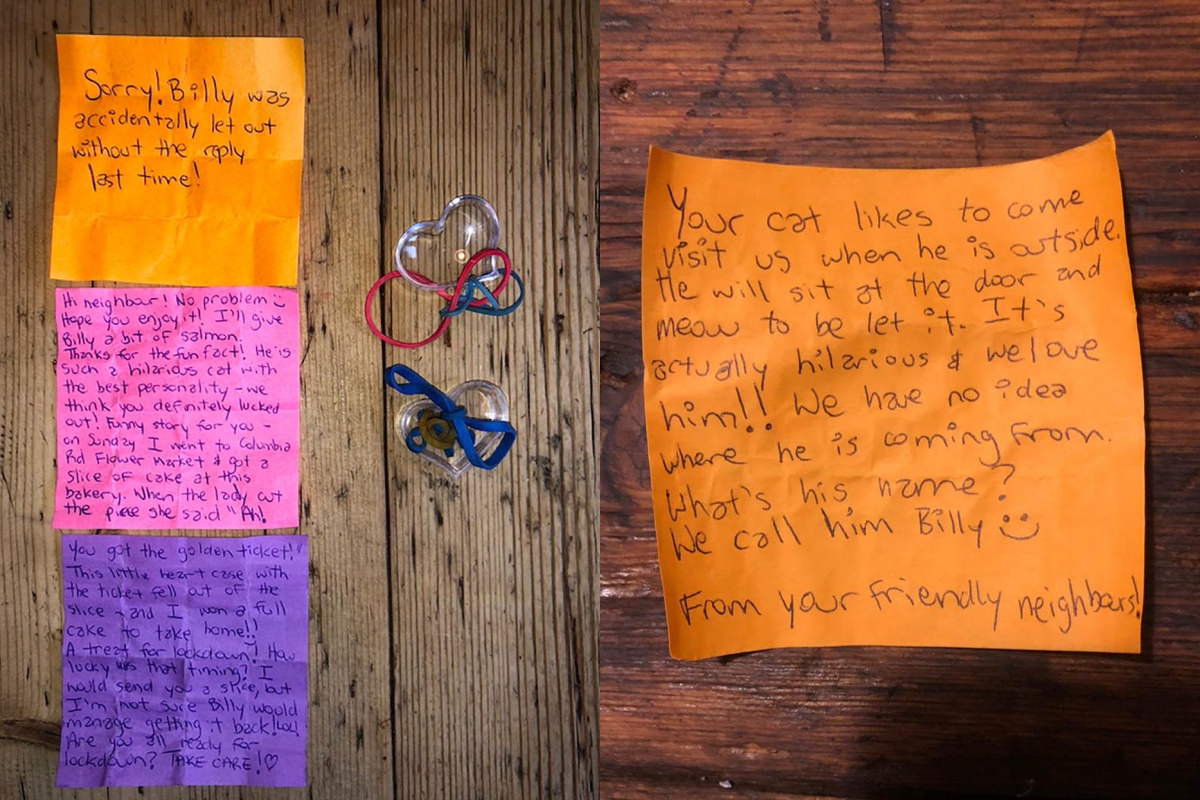 Sorry! Billy was
accidentally let out
without the reply
last time!
Hi neighbour! No problem :)
Hope you enjoy it! I'll give
Billy a bit of salmon!
Thanks for the fun fact! He is
such a hilarious cat with
the best personality - we
think you definitely lucked
out! Funny story for you -
on Sunday I went to Columbia
Rd Flower Market & got a
slice of cake at this
bakery. When the lady cut
the piece she said "Ah!
You got the golden ticket!"
This little heart case with
the ticket fell out of the
slice - and I won a full
cake to take home!!
A treat for lockdown! How
lucky was that timing? I
would send you a slice, but
I'm not sure Billy would
manage getting it back! lol!
Are you all ready for
lockdown? TAKE CARE! ♡
Your cat likes to come
visit us when he is outside.
He will sit at the door and
meow to be let it. It's
actually hilarious & we love
him!! We have no idea
where he is coming from.
What's his name?
We call him Billy :)
From your friendly neighbours!